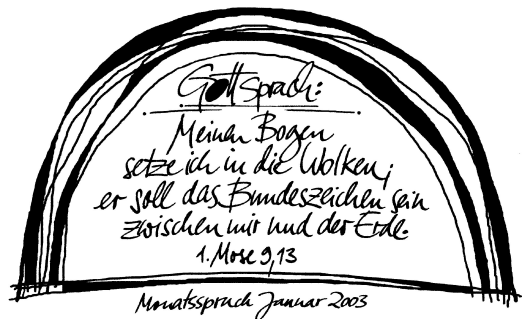 Gott sprach:
Meinen Bogen
setze ich in die Wolken;
er soll das Bundeszeichen sein
zwischen mir und der Erde.
1. Mose 9,13
Monatsspruch Januar 2003